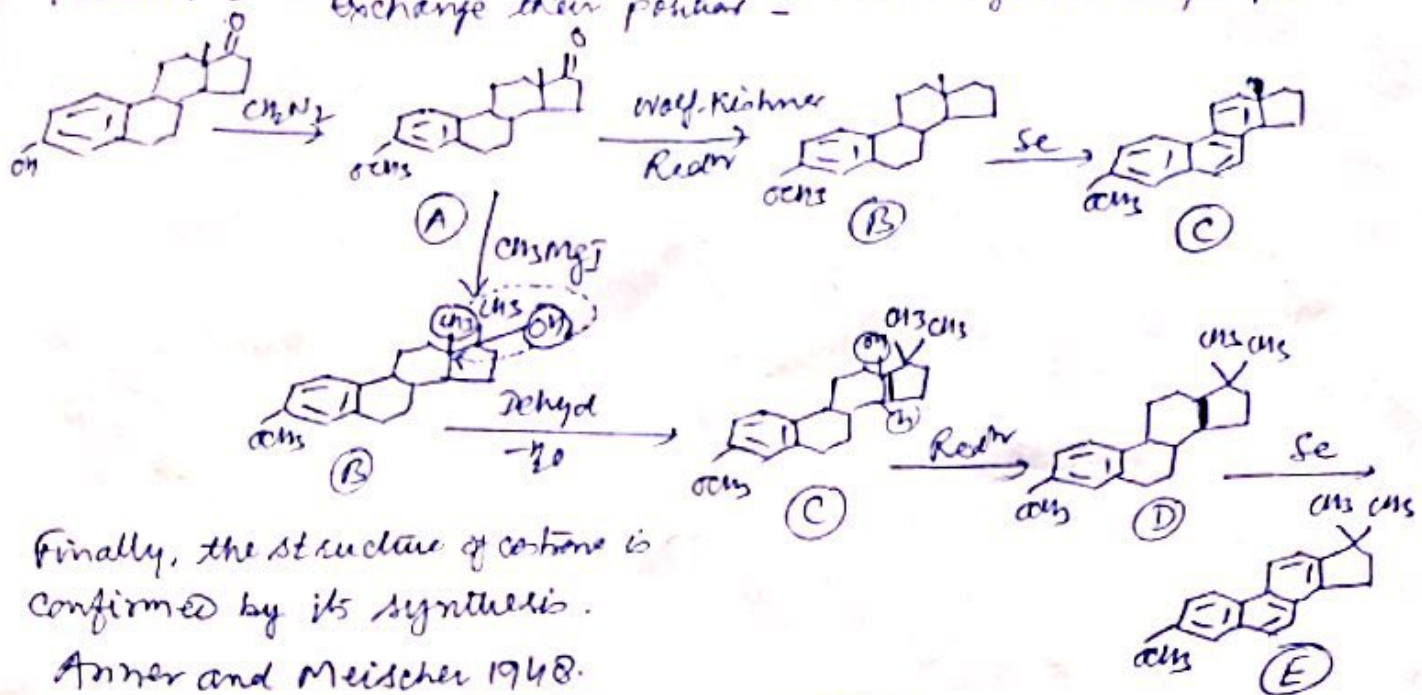 exchange their position -
O
O
CH2N2
Wolf-Kishner
Redn
Se
OH
OCH3
OCH3
OCH3
A
B
C
CH3MgI
CH3
CH3
OH
OCH3
B
Dehyd
-H2O
CH3
CH3
OCH3
C
Redn
CH3 CH3
OCH3
D
Se
CH3 CH3
OCH3
E
Finally, the structure of
is
confirmed by its synthesis.
Anner and Meischer 1948.